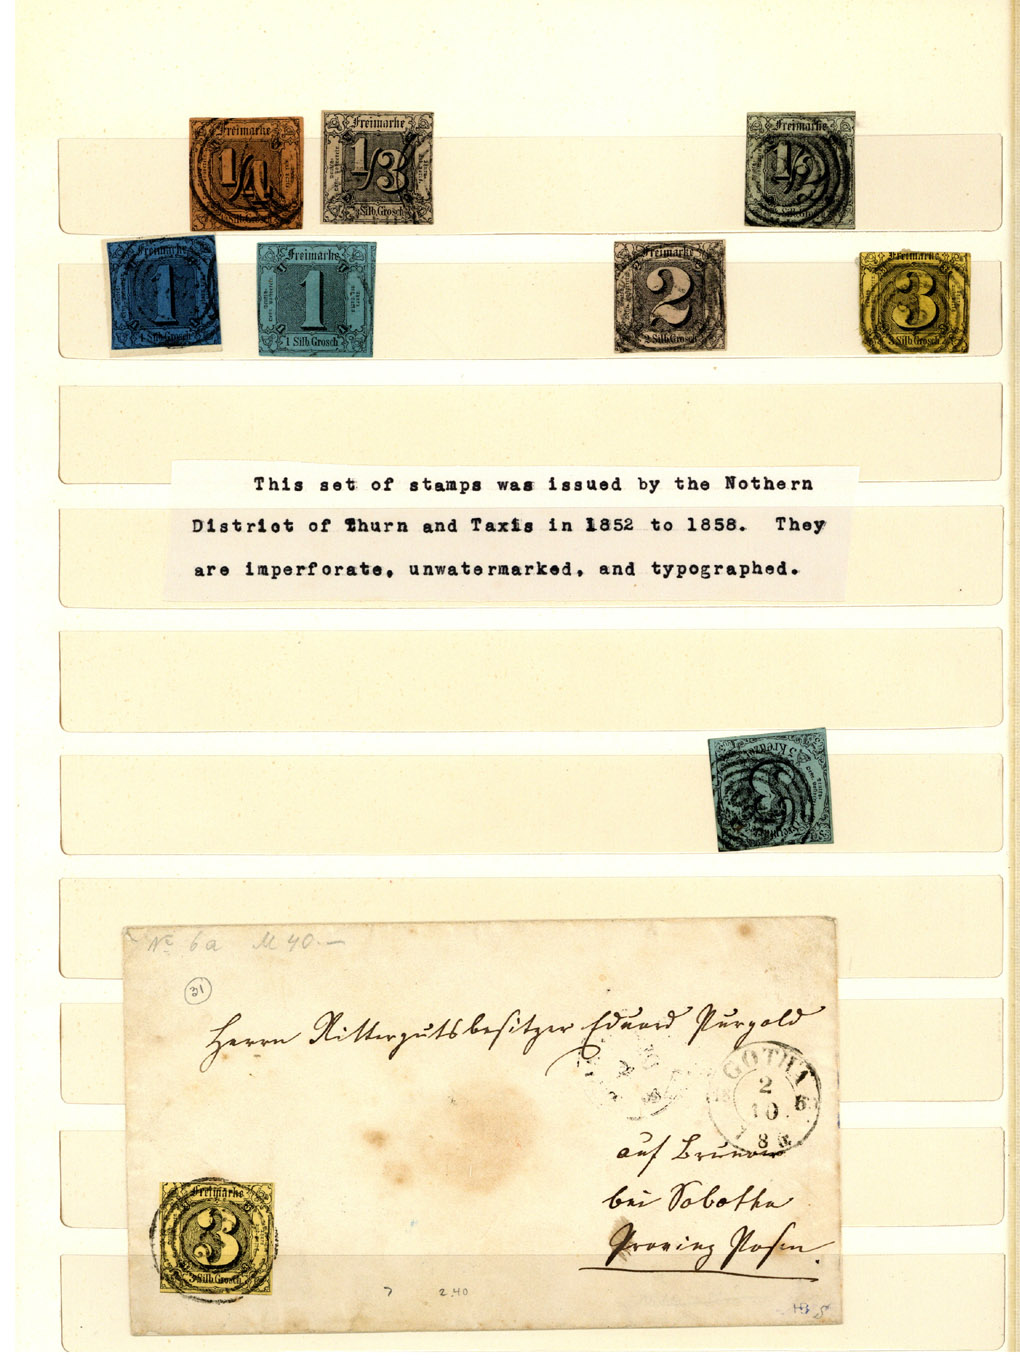 Freimarke
1/4
Silb.Grosch
Freimarke
1/3
Silb.Grosch
Freimarke
1/2
Freimarke
1
1 Silb Grosch
Freimarke
1
1 Silb Grosch
Freimarke
2
2 Silb Grosch
Freimarke
3
3 Silb Grosch
This set of stamps was issued by the Nothern
District of Thurn and Taxis in 1852 to 1858. They
are imperforate, unwatermarked, and typographed.
3 Kreuzer
3
Freimarke
No 6a M 40.—
31
Herrn Rittergutsbesitzer Eduard Purgold
GOTHA
2
10
8
auf Brunow
bei Sobotka
Provinz Posen.
Freimarke
3
3 Silb Grosch
7 2.40